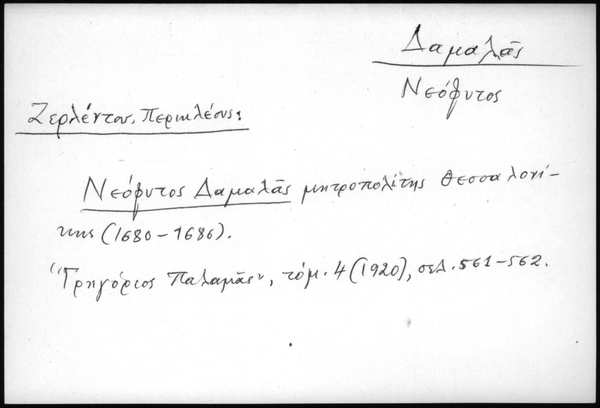 Δαμαλᾶς
Νεόφυτος
Ζερλέντου, Περικλέους:
Νεόφυτος Δαμαλᾶς μητροπολίτης Θεσσαλονί-
κης (1680-1686).
"Γρηγόριος Παλαμᾶς", τόμ. 4 (1920), σελ. 561-562.